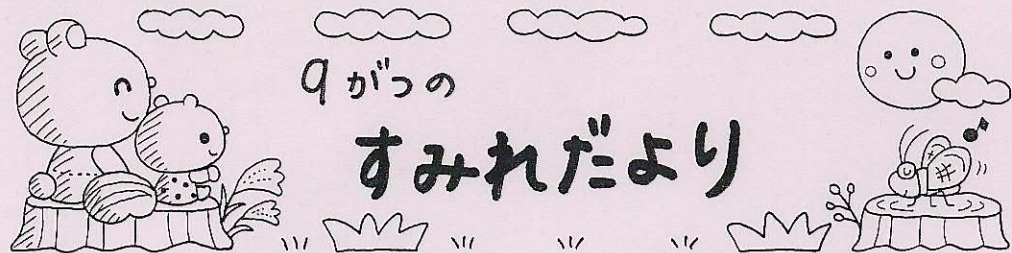 9がつの
すみれだより